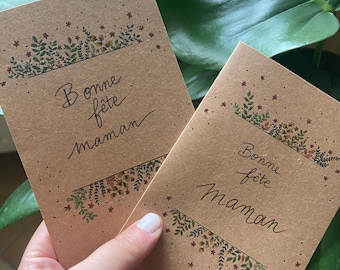 Bonne
fête
maman
Bonne
fête
maman